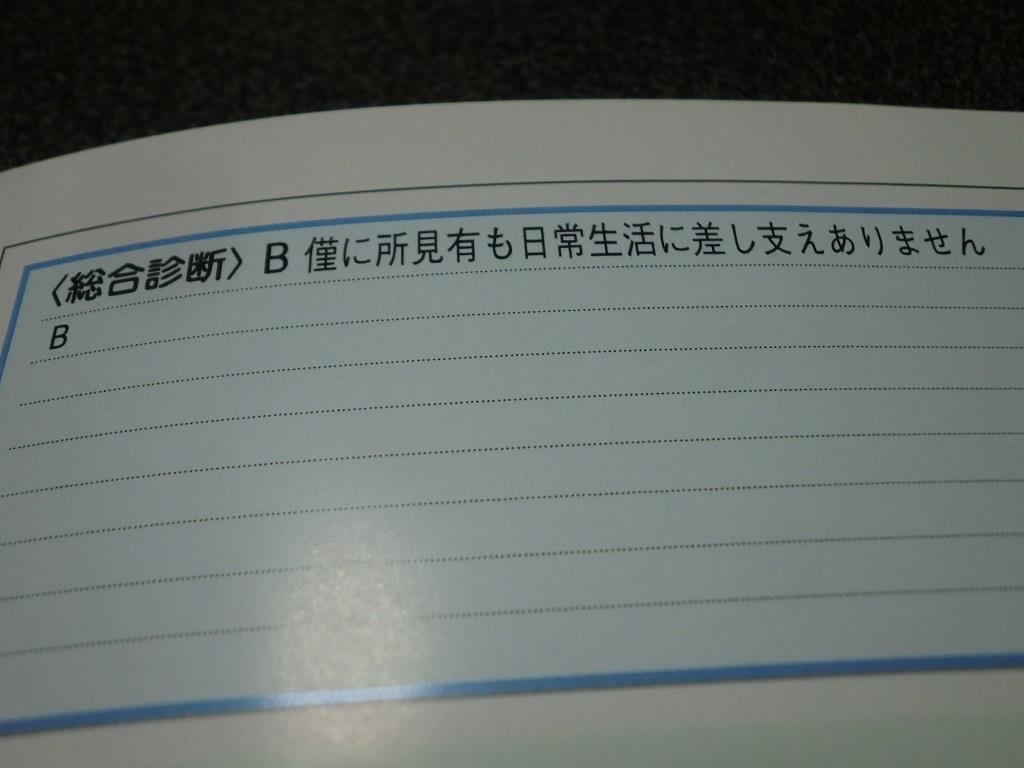 〈総合診断〉 B 僅に所見有も日常生活に差し支えありません
B